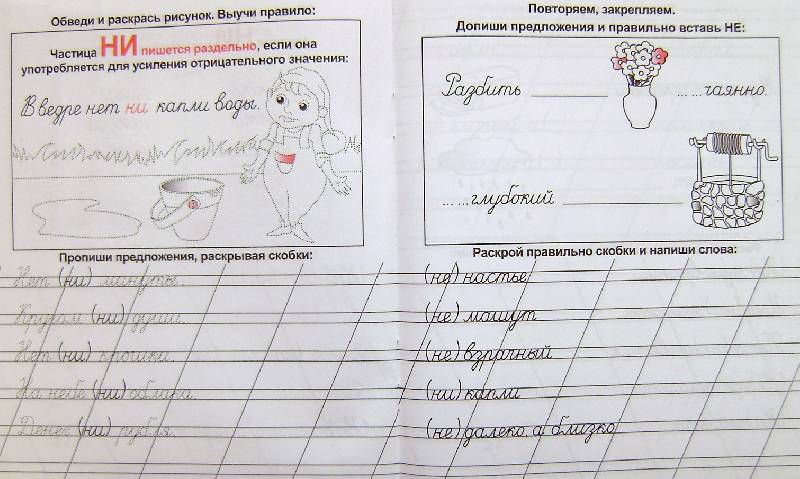 Обведи и раскрась рисунок. Выучи правило:
Частица НИ пишется раздельно, если она
употребляется для усиления отрицательного значения:
В ведре нет ни капли воды.
Пропиши предложения, раскрывая скобки:
Нет (ни) минуты.
Кругом (ни) души.
Нет (ни) крошки.
На небе (ни) облака.
Денег (ни) рубля.
Повторяем, закрепляем.
Допиши предложения и правильно вставь НЕ:
Разбить __________ ... ...чаянно.
... ...глубокий __________
Раскрой правильно скобки и напиши слова:
(не) настье
(не) машут
(не) взрачный
(ни) капли
(не) далеко, а близко